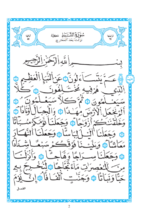 سورة النبإ
بسم الله الرحمن الرحيم
عم يتساءلون عن النبإ العظيم
الذي هم فيه مختلفون كلا
سيعلمون ثم كلا سيعلمون ألم
نجعل الأرض مهادا والجبال أوتادا
وخلقناكم أزواجا وجعلنا نومكم سباتا
وجعلنا الليل لباسا وجعلنا النهار
معاشا وبنينا فوقكم سبعا شدادا
وجعلنا سراجا وهاجا وأنزلنا
من المعصرات ماء ثجاجا لنخرج به
حبا ونباتا وجنات ألفافا إن يوم